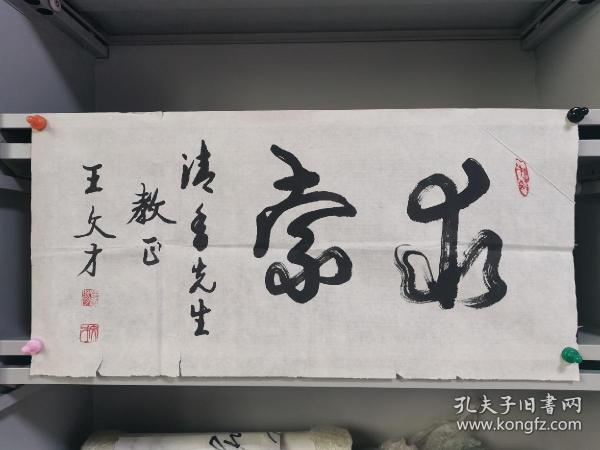 求索
清香先生
教正
王文才
孔夫子旧书网
www.kongfz.com